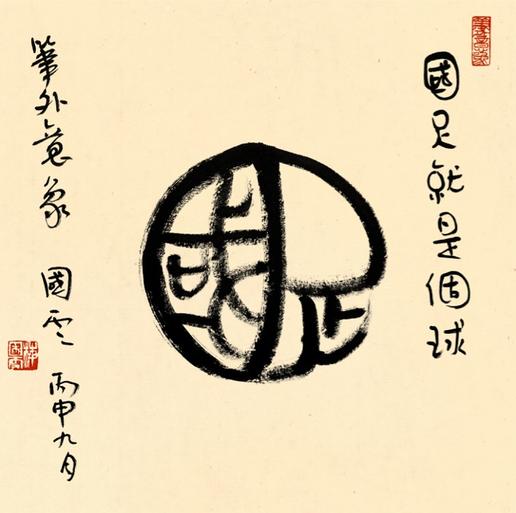 國足就是個球
國足
筆外意象 國雲 丙申九月